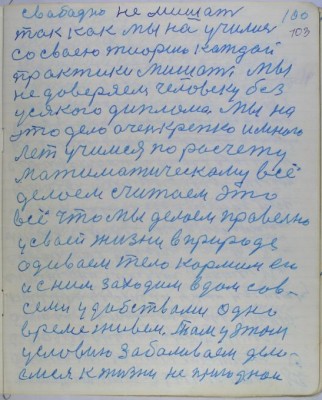 свабадно не мишат 180
103
так как мы на училися
со своею тиорию каждай
практики мишат. Мы
не доверяем человеку без
усякого диплома. Мы на
это дело очен крепко и много
лет учимся по расчету
матиматическому всё
делаем считаем это
всё что мы делаем правелно
у сваей жизни в природе
одиваем тело кормим его
и с ним заходим в дом сов-
семи удобствами одно
время живем. Там у этом
условию забаливаем дела-
емся к жизни не пригоднаи